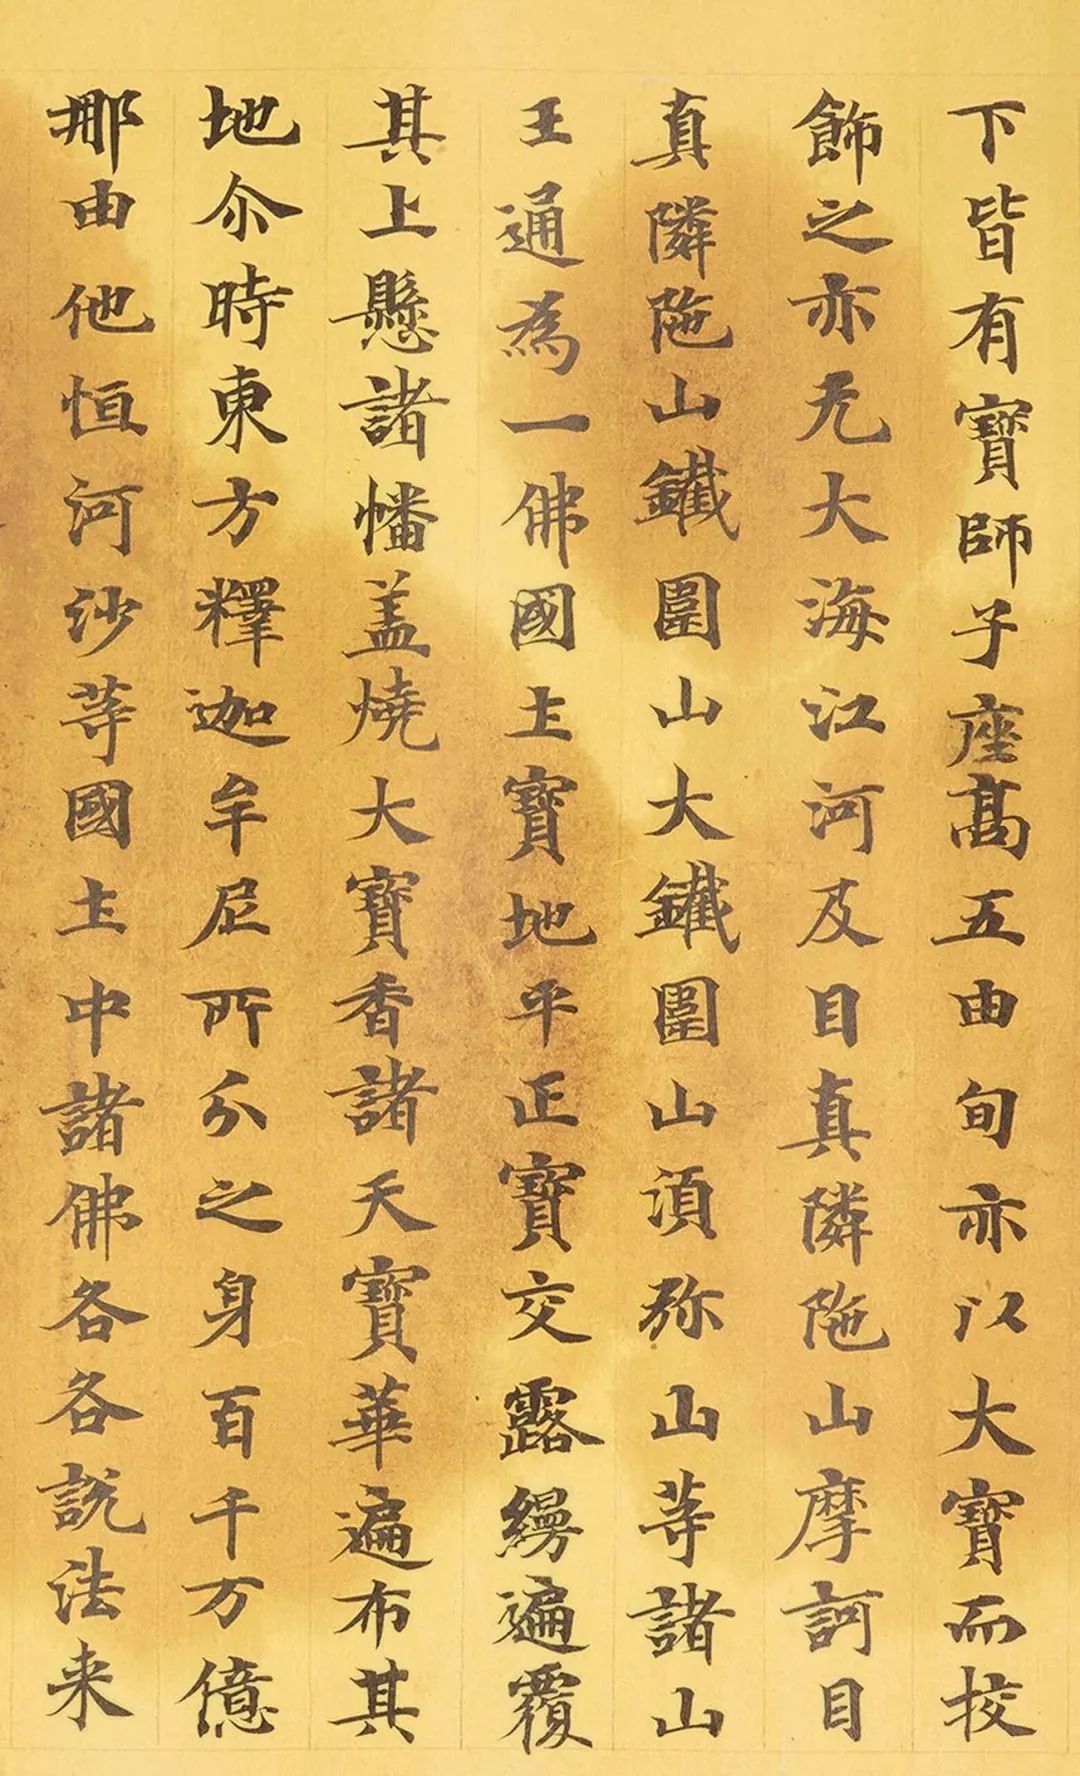 下皆有寶師子座高五由旬亦以大寶而挍
飾之亦无大海江河及目真隣陁山摩訶目
真隣陁山鐵圍山大鐵圍山湏弥山等諸山
王通為一佛國土寶地平正寶交露縵遍覆
其上懸諸幡盖燒大寶香諸天寶華遍布其
地尒時東方釋迦牟尼所分之身百千万億
那由他恒河沙等國土中諸佛各各說法来